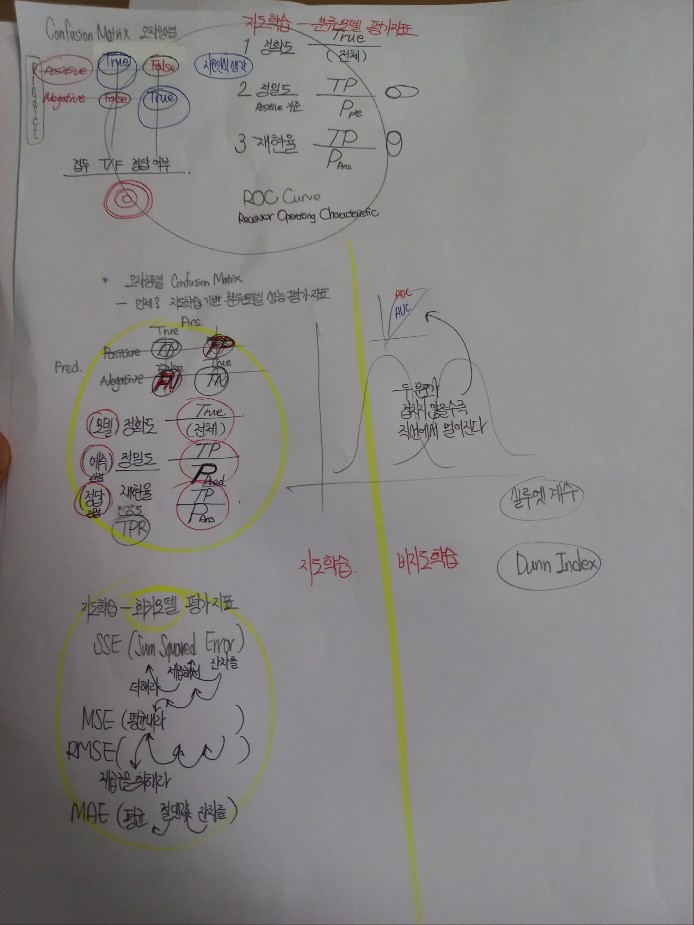 Confusion Matrix 오차행렬
지도학습 - 분류모델 평가지표
Predict
Positive True False
Negative False True
접두 T/F 정답 여부
1 정확도 True
(전체)
2 정밀도 TP
Positive 기준 P pre
3 재현율 TP
P Ans
ROC Curve
Receiver Operating Characteristic
* 오차행렬 Confusion Matrix
- 언제? 지도학습 기반 분류모델 성능 평가 지표
Ans
True
Pred. Positive TP FP
False True
Negative FN TN
(모델) 정확도 True
(전체)
예측 정밀도 TP
관점 P Pred
정답 재현율 TP
관점 민감도 P Ans
TPR
ROC
AUC
두 분포가
겹치지 않을수록
직선에서 멀어진다
실루엣 계수
지도학습 비지도학습
Dunn Index
지도학습 - 회귀모델 평가지표
SSE (Sum Squared Error)
더해라 제곱해서 잔차를
MSE (평균내라 )
RMSE( )
제곱근을 취해라
MAE (평균 절댓값 잔차를)